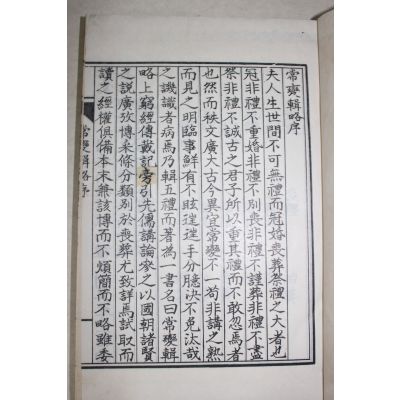 常變輯略序
夫人生世間不可無禮而冠婚喪葬祭禮之大者也
冠非禮不重婚非禮不別喪非禮不謹葬非禮不盡
祭非禮不誠古之君子所以重其禮而不敢忽焉者
也然而秩文廣大古今異宜常變不一苟非講之熟
而見之明臨事鮮有不眩瑝手分臆決不免汰哉
之譏識者病焉乃輯五禮而著為一書名曰常變輯
略上窮經傳戴記旁引先儒講論參之以國朝諸賢
之說廣攷博采條分類別於喪葬尤致詳焉試取而
讀之經權俱備本末兼該博而不煩簡而不略雖委
常變輯略序